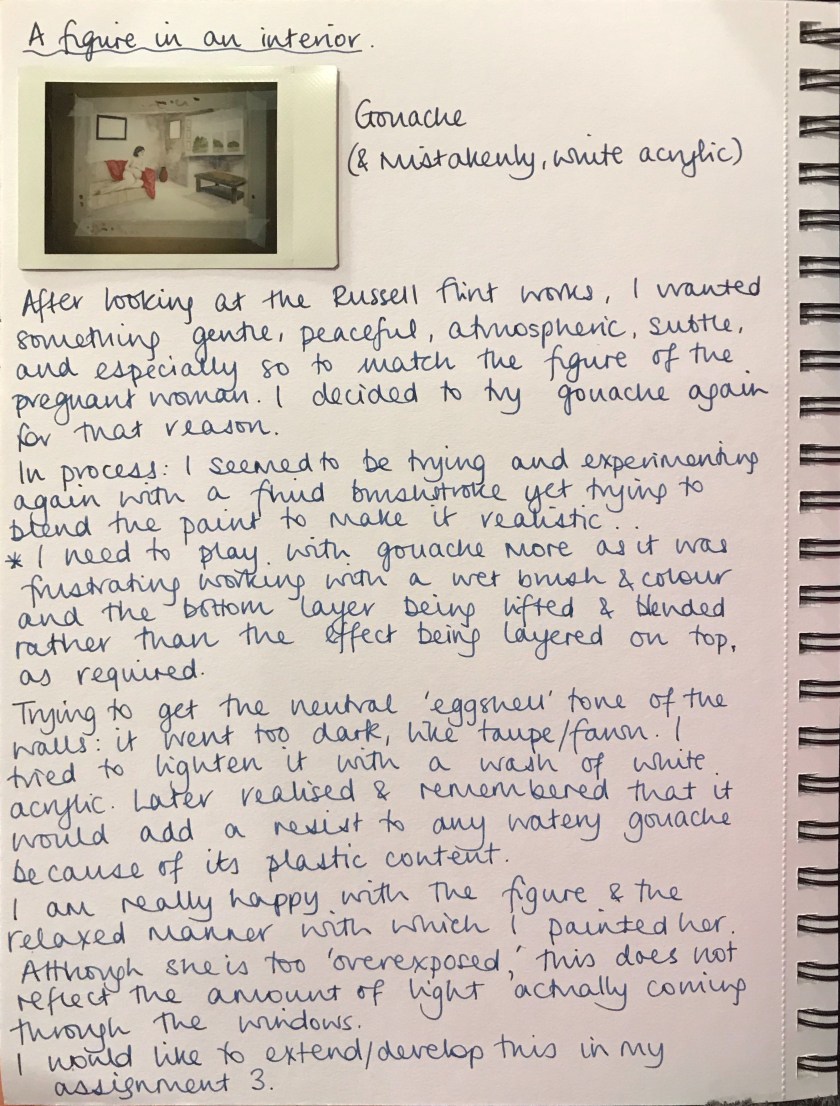 A figure in an interior.
Gouache
(& mistakenly, white acrylic)
After looking at the Russell Flint works, I wanted
something gentle, peaceful, atmospheric, subtle,
and especially so to match the figure of the
pregnant woman. I decided to try gouache again
for that reason.
In process: I seemed to be trying and experimenting
again with a fluid brushstroke yet trying to
blend the paint to make it realistic...
* I need to play with gouache more as it was
frustrating working with a wet brush & colour
and the bottom layer being lifted & blended
rather than the effect being layered on top,
as required.
Trying to get the neutral 'eggshell' tone of the
walls: it went too dark, like taupe/fawn. I
tried to lighten it with a wash of white
acrylic. Later realised & remembered that it
would add a resist to any watery gouache
because of its plastic content.
I am really happy with the figure & the
relaxed manner with which I painted her.
Although she is too 'overexposed,' this does not
reflect the amount of light actually coming
through the windows.
I would like to extend/develop this in my
assignment 3.